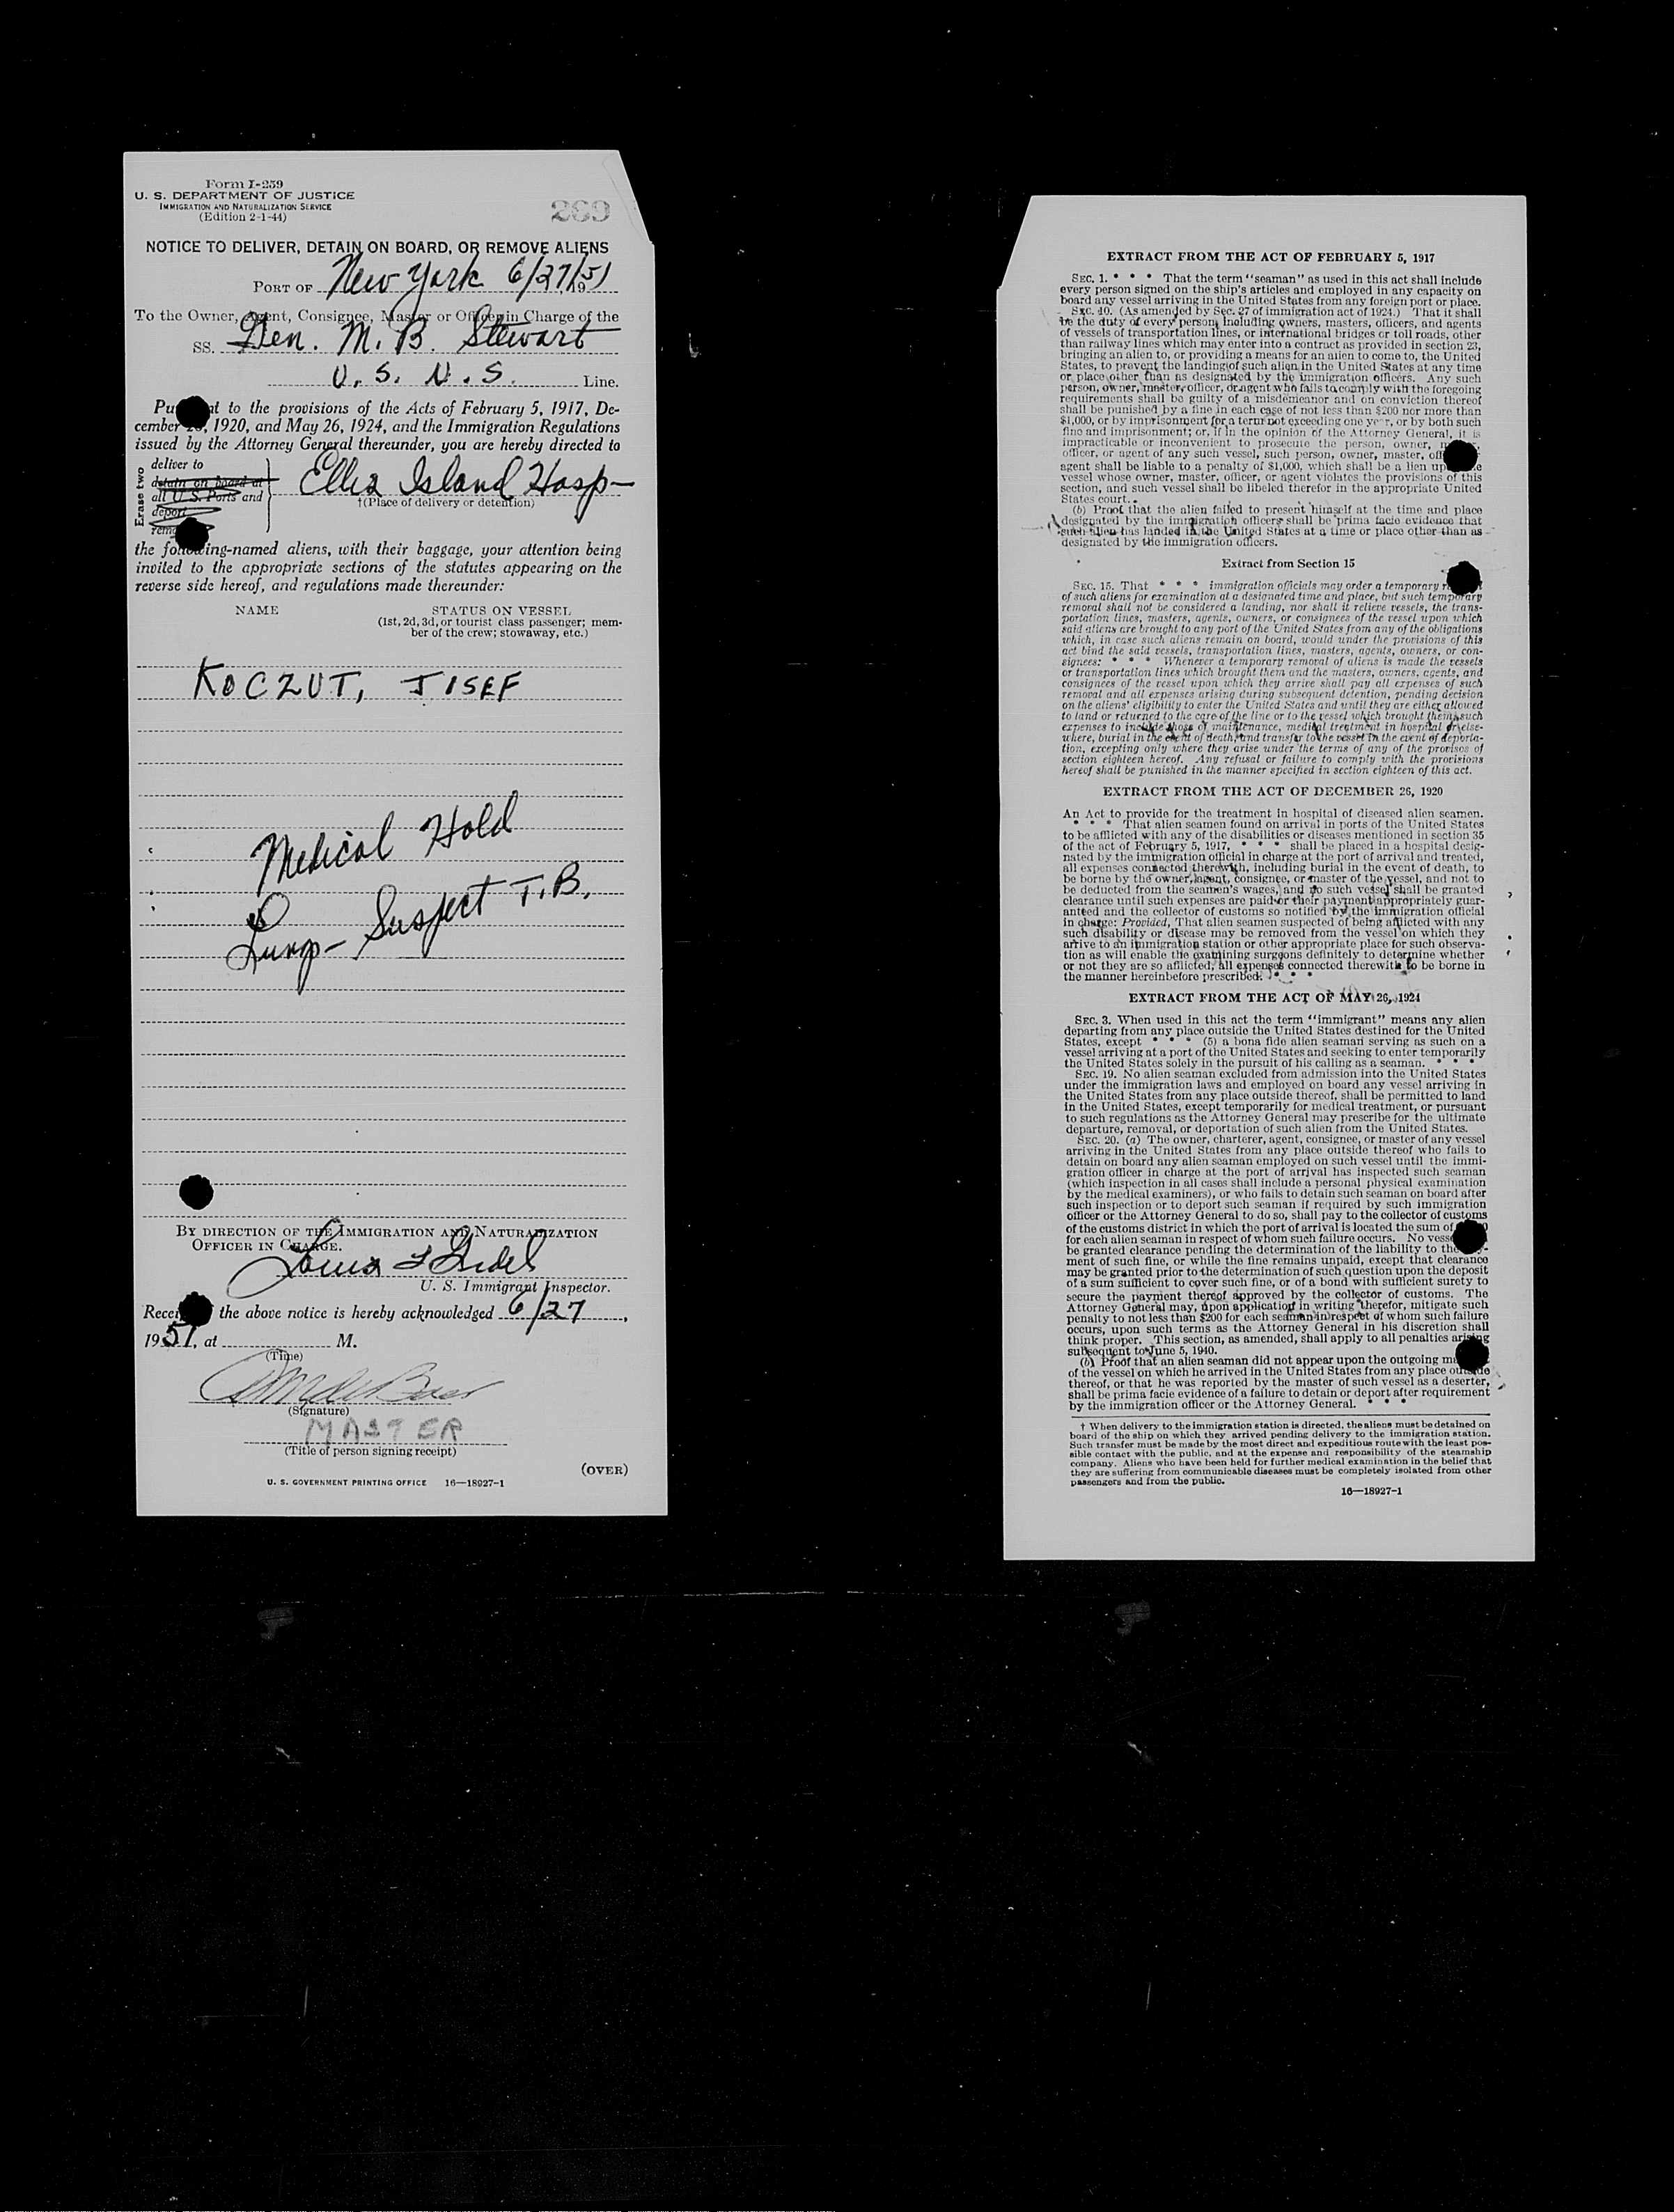 Form I-259
U. S. DEPARTMENT OF JUSTICE
IMMIGRATION AND NATURALIZATION SERVICE
(Edition 2-1-44)
269
NOTICE TO DELIVER, DETAIN ON BOARD, OR REMOVE ALIENS
PORT OF New York 6/27/1951
To the Owner, Agent, Consignee, Master or Officer in Charge of the
SS. Gen. M. B. Stewart
U. S. N. S. Line.
Pu at to the provisions of the Acts of February 5, 1917, De-
cember 26, 1920, and May 26, 1924, and the Immigration Regulations
issued by the Attorney General thereunder, you are hereby directed to
Erase two
deliver to
detain on board at
all U. S. Ports and
deport
remo
Ellis Island Hosp-
†(Place of delivery or detention)
the following-named aliens, with their baggage, your attention being
invited to the appropriate sections of the statutes appearing on the
reverse side hereof, and regulations made thereunder:
NAME STATUS ON VESSEL
(1st, 2d, 3d, or tourist class passenger; mem-
ber of the crew; stowaway, etc.)
KOCZUT, JISEF
Medical Hold
Lung - Suspect T.B.
BY DIRECTION OF THE IMMIGRATION AND NATURALIZATION
OFFICER IN CHARGE.
U. S. Immigrant Inspector.
Recei the above notice is hereby acknowledged 6/27,
1951, at M.
(Time)
(Signature)
MASTER
(Title of person signing receipt)
(OVER)
U. S. GOVERNMENT PRINTING OFFICE 16—18927-1
EXTRACT FROM THE ACT OF FEBRUARY 5, 1917
SEC. 1. * * * That the term "seaman" as used in this act shall include
every person signed on the ship's articles and employed in any capacity on
board any vessel arriving in the United States from any foreign port or place.
SEC. 10. (As amended by Sec. 27 of immigration act of 1924.) That it shall
be the duty of every person, including owners, masters, officers, and agents
of vessels of transportation lines, or international bridges or toll roads, other
than railway lines which may enter into a contract as provided in section 23,
bringing an alien to, or providing a means for an alien to come to, the United
States, to prevent the landing of such alien in the United States at any time
or place other than as designated by the immigration officers. Any such
person, owner, master, officer, or agent who fails to comply with the foregoing
requirements shall be guilty of a misdemeanor and on conviction thereof
shall be punished by a fine in each case of not less than $200 nor more than
$1,000, or by imprisonment for a term not exceeding one year, or by both such
fine and imprisonment; or, if in the opinion of the Attorney General, it is
impracticable or inconvenient to prosecute the person, owner, master,
officer, or agent of any such vessel, such person, owner, master, off
agent shall be liable to a penalty of $1,000, which shall be a lien up e
vessel whose owner, master, officer, or agent violates the provisions of this
section, and such vessel shall be libeled therefor in the appropriate United
States court.
(b) Proof that the alien failed to present himself at the time and place
designated by the immigration officers shall be prima facie evidence that
such alien has landed in the United States at a time or place other than as
designated by the immigration officers.
Extract from Section 15
SEC. 15. That * * * immigration officials may order a temporary r
of such aliens for examination at a designated time and place, but such temporary
removal shall not be considered a landing, nor shall it relieve vessels, the trans-
portation lines, masters, agents, owners, or consignees of the vessel upon which
said aliens are brought to any port of the United States from any of the obligations
which, in case such aliens remain on board, would under the provisions of this
act bind the said vessels, transportation lines, masters, agents, owners, or con-
signees: * * * Whenever a temporary removal of aliens is made the vessels
or transportation lines which brought them and the masters, owners, agents, and
consignees of the vessel upon which they arrive shall pay all expenses of such
removal and all expenses arising during subsequent detention, pending decision
on the aliens' eligibility to enter the United States and until they are either allowed
to land or returned to the care of the line or to the vessel which brought them, such
expenses to include those of maintenance, medical treatment in hospital or else-
where, burial in the event of death, and transfer to the vessel in the event of deporta-
tion, excepting only where they arise under the terms of any of the provisos of
section eighteen hereof. Any refusal or failure to comply with the provisions
hereof shall be punished in the manner specified in section eighteen of this act.
EXTRACT FROM THE ACT OF DECEMBER 26, 1920
An Act to provide for the treatment in hospital of diseased alien seamen.
* * * That alien seamen found on arrival in ports of the United States
to be afflicted with any of the disabilities or diseases mentioned in section 35
of the act of February 5, 1917, * * * shall be placed in a hospital desig-
nated by the immigration official in charge at the port of arrival and treated,
all expenses connected therewith, including burial in the event of death, to
be borne by the owner, agent, consignee, or master of the vessel, and not to
be deducted from the seamen's wages, and no such vessel shall be granted
clearance until such expenses are paid or their payment appropriately guar-
anteed and the collector of customs so notified by the immigration official
in charge: Provided, That alien seamen suspected of being afflicted with any
such disability or disease may be removed from the vessel on which they
arrive to an immigration station or other appropriate place for such observa-
tion as will enable the examining surgeons definitely to determine whether
or not they are so afflicted, all expenses connected therewith to be borne in
the manner hereinbefore prescribed. * * *
EXTRACT FROM THE ACT OF MAY 26, 1924
SEC. 3. When used in this act the term "immigrant" means any alien
departing from any place outside the United States destined for the United
States, except * * * (5) a bona fide alien seaman serving as such on a
vessel arriving at a port of the United States and seeking to enter temporarily
the United States solely in the pursuit of his calling as a seaman. * * *
SEC. 19. No alien seaman excluded from admission into the United States
under the immigration laws and employed on board any vessel arriving in
the United States from any place outside thereof, shall be permitted to land
in the United States, except temporarily for medical treatment, or pursuant
to such regulations as the Attorney General may prescribe for the ultimate
departure, removal, or deportation of such alien from the United States.
SEC. 20. (a) The owner, charterer, agent, consignee, or master of any vessel
arriving in the United States from any place outside thereof who fails to
detain on board any alien seaman employed on such vessel until the immi-
gration officer in charge at the port of arrival has inspected such seaman
(which inspection in all cases shall include a personal physical examination
by the medical examiners), or who fails to detain such seaman on board after
such inspection or to deport such seaman if required by such immigration
officer or the Attorney General to do so, shall pay to the collector of customs
of the customs district in which the port of arrival is located the sum of
for each alien seaman in respect of whom such failure occurs. No vess
be granted clearance pending the determination of the liability to the
ment of such fine, or while the fine remains unpaid, except that clearance
may be granted prior to the determination of such question upon the deposit
of a sum sufficient to cover such fine, or of a bond with sufficient surety to
secure the payment thereof approved by the collector of customs. The
Attorney General may, upon application in writing therefor, mitigate such
penalty to not less than $200 for each seaman in respect of whom such failure
occurs, upon such terms as the Attorney General in his discretion shall
think proper. This section, as amended, shall apply to all penalties arising
subsequent to June 5, 1940.
(b) Proof that an alien seaman did not appear upon the outgoing m
of the vessel on which he arrived in the United States from any place outside
thereof, or that he was reported by the master of such vessel as a deserter,
shall be prima facie evidence of a failure to detain or deport after requirement
by the immigration officer or the Attorney General. * * *
† When delivery to the immigration station is directed, the aliens must be detained on
board of the ship on which they arrived pending delivery to the immigration station.
Such transfer must be made by the most direct and expeditious route with the least pos-
sible contact with the public, and at the expense and responsibility of the steamship
company. Aliens who have been held for further medical examination in the belief that
they are suffering from communicable diseases must be completely isolated from other
passengers and from the public.
16—18927-1